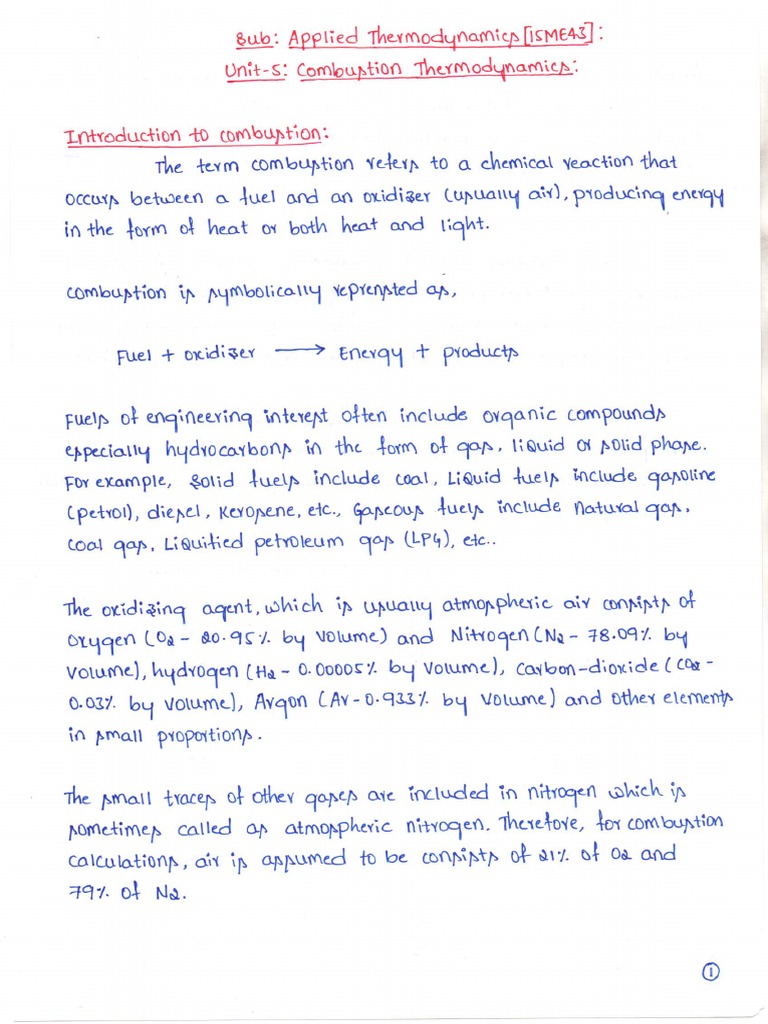 Sub: Applied Thermodynamics[15ME43]:
Unit-5: Combustion Thermodynamics:
Introduction to combustion:
The term combustion refers to a chemical reaction that
occurs between a fuel and an oxidizer (usually air), producing energy
in the form of heat or both heat and light.
Combustion is symbolically reprensted as,
Fuel + oxidizer ⟶ Energy + products
Fuels of engineering interest often include organic compounds
especially hydrocarbons in the form of gas, liquid or solid phase.
For example, Solid fuels include coal, Liquid fuels include gasoline
(petrol), diesel, Kerosene, etc., Gaseous fuels include Natural gas,
Coal gas, Liquified petroleum gas (LPG), etc..
The oxidizing agent, which is usually atmospheric air consists of
oxygen (O₂ - 20.95% by Volume) and Nitrogen (N₂ - 78.09% by
Volume), hydrogen (H₂ - 0.00005% by Volume), Carbon-dioxide (CO₂ -
0.03% by Volume), Argon (Ar - 0.933% by Volume) and other elements
in small proportions.
The small traces of other gases are included in nitrogen which is
sometimes called as atmospheric nitrogen. Therefore, for combustion
calculations, air is assumed to be consists of 21% of O₂ and
79% of N₂.
1